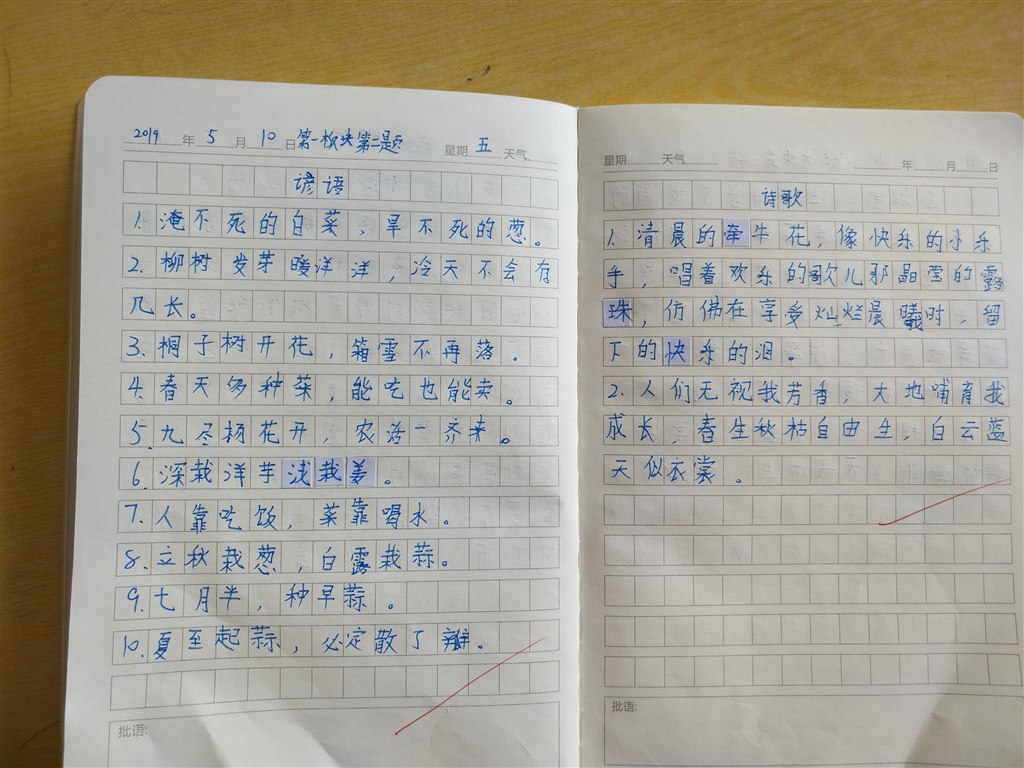 2019 年 5 月 10 日 第一板块第二题 星期 五 天气
谚语
1. 淹不死的白菜，旱不死的葱。
2. 柳树发芽暖洋洋，冷天不会有
几长。
3. 桐子树开花，箱雪不再落。
4. 春天多种菜，能吃也能卖。
5. 九尽杨花开，农活一齐来。
6. 深栽洋芋浅栽姜。
7. 人靠吃饭，菜靠喝水。
8. 立秋栽葱，白露栽蒜。
9. 七月半，种早蒜。
10. 夏至起蒜，必定散了瓣。
批语:
星期 天气 年 月 日
诗歌
1. 清晨的牵牛花，像快乐的小乐
手，唱着欢乐的歌儿那晶莹的露
珠，仿佛在享受灿烂晨曦时，留
下的快乐的泪。
2. 人们无视我芳香，大地哺育我
成长，春生秋枯自由生，白云蓝
天似衣裳。
批语: